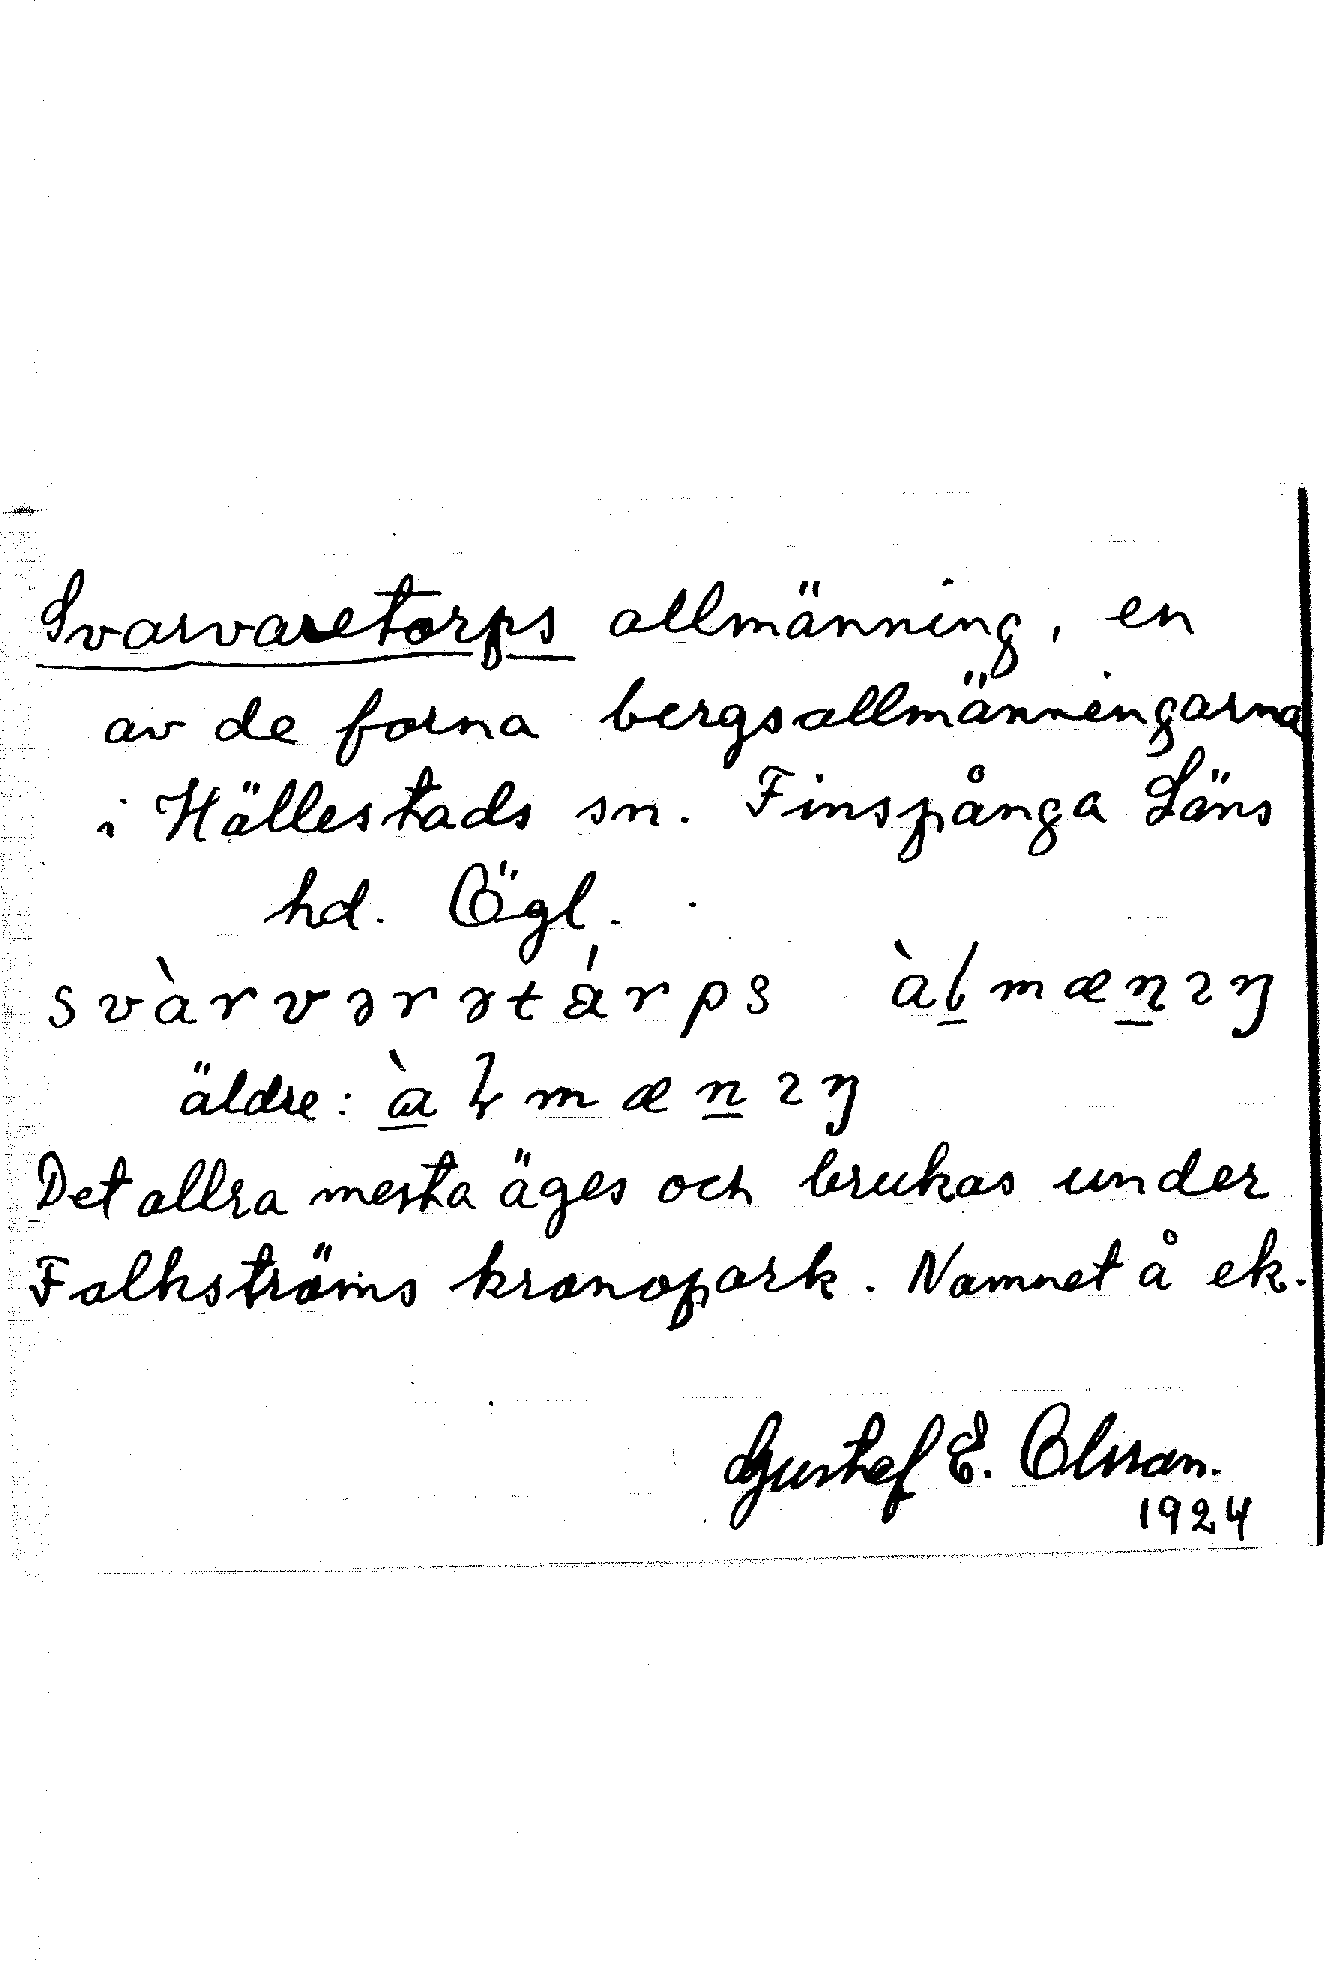 Svarvaretorps allmänning, en
av de forna bergsallmänningarna
i Hällestads sn. Finspånga Läns
hd. Ögl.
svàrvərətárps àlmænıŋ
äldre: àɫmænıŋ
Det allra mesta äges och brukas under
Folkströms kronopark. Namnet å ek.
Gustaf E. Olsson.
1924